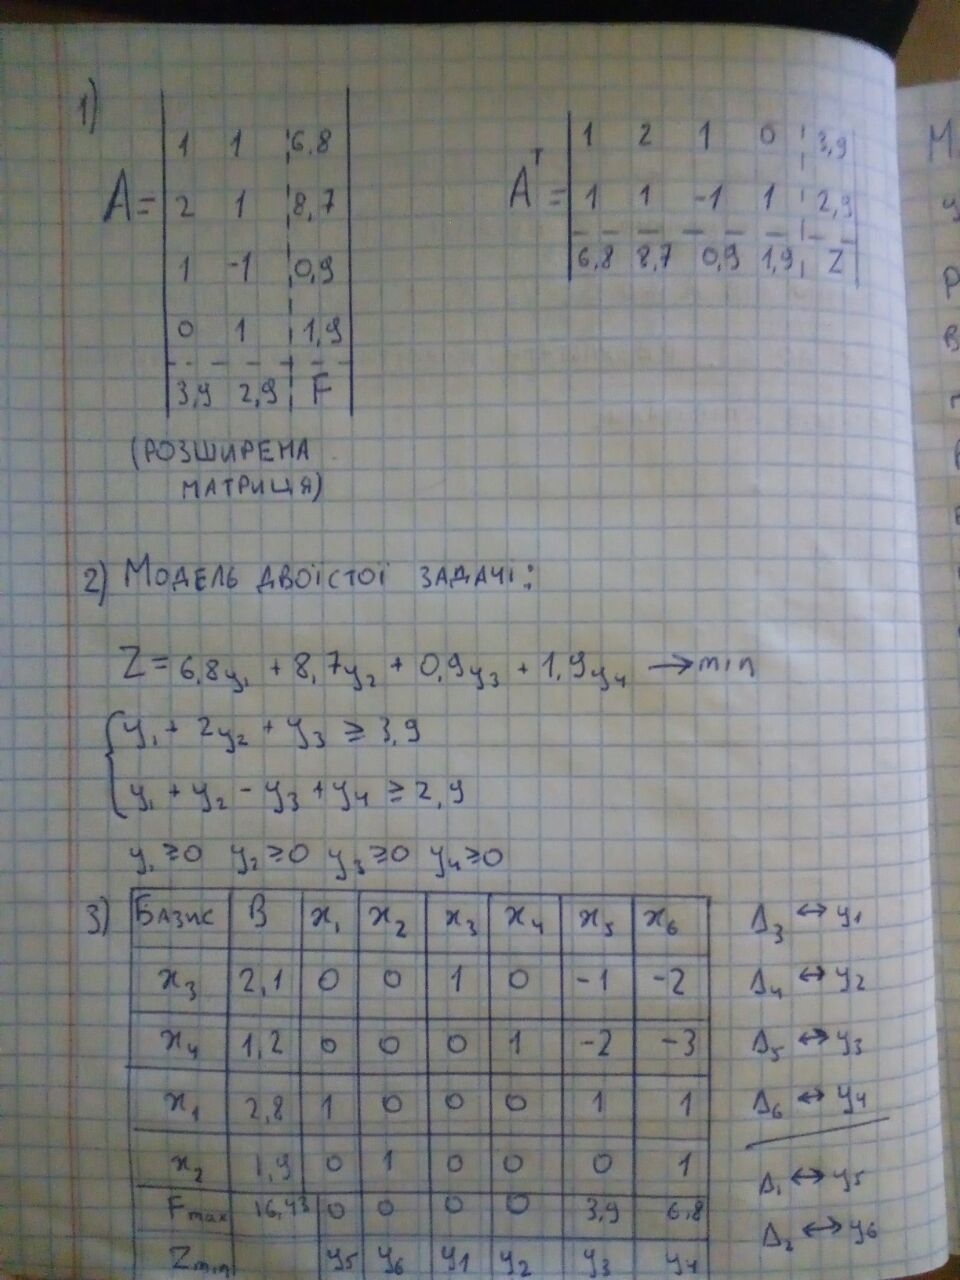 1)
A =
1 1 6.8
2 1 8,7
1 -1 0,9
0 1 1,9
3,9 2,9 F
(РОЗШИРЕНА
МАТРИЦЯ)
Aᵀ =
1 2 1 0 3,9
1 1 -1 1 2,9
6,8 8,7 0,9 1,9 Z
2) МОДЕЛЬ ДВОЇСТОЇ ЗАДАЧІ:
Z = 6,8y₁ + 8,7y₂ + 0,9y₃ + 1,9y₄ → min
y₁ + 2y₂ + y₃ ≥ 3,9
y₁ + y₂ - y₃ + y₄ ≥ 2,9
y₁ ≥ 0 y₂ ≥ 0 y₃ ≥ 0 y₄ ≥ 0
3)
БАЗИС B x₁ x₂ x₃ x₄ x₅ x₆
x₃ 2,1 0 0 1 0 -1 -2
x₄ 1,2 0 0 0 1 -2 -3
x₁ 2,8 1 0 0 0 1 1
x₂ 1,9 0 1 0 0 0 1
Fmax 16,43 0 0 0 0 3,9 6,8
Zmin y₅ y₆ y₁ y₂ y₃ y₄
Δ₃ ↔ y₁
Δ₄ ↔ y₂
Δ₅ ↔ y₃
Δ₆ ↔ y₄
Δ₁ ↔ y₅
Δ₂ ↔ y₆